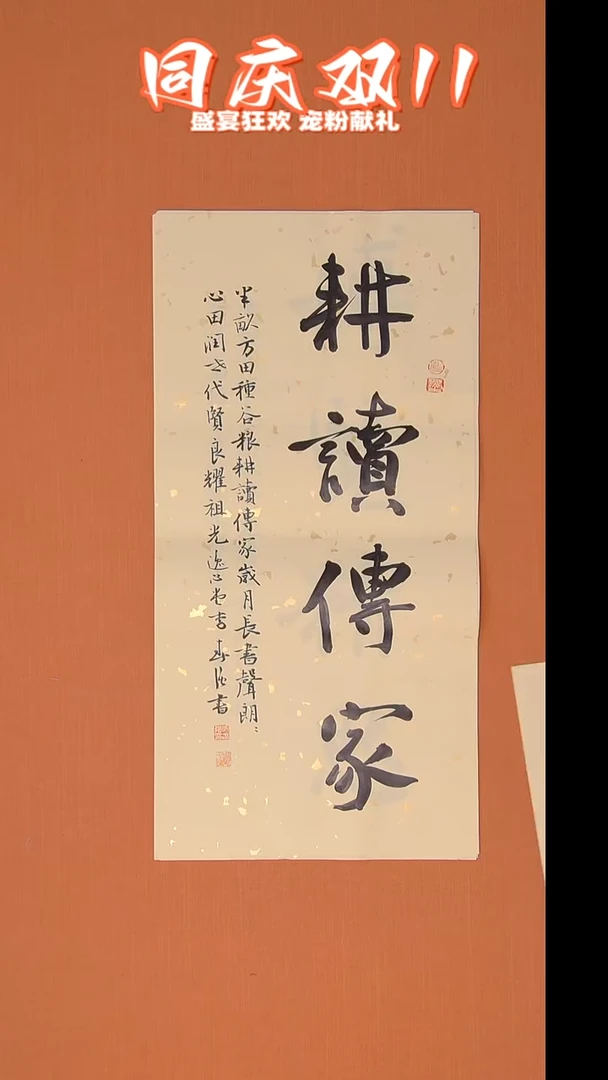 同庆双11
盛宴狂欢 宠粉献礼
耕讀傳家
半畝方田種谷粮耕讀傳家歲月長書聲朗〻
心田潤世代賢良耀祖光
書